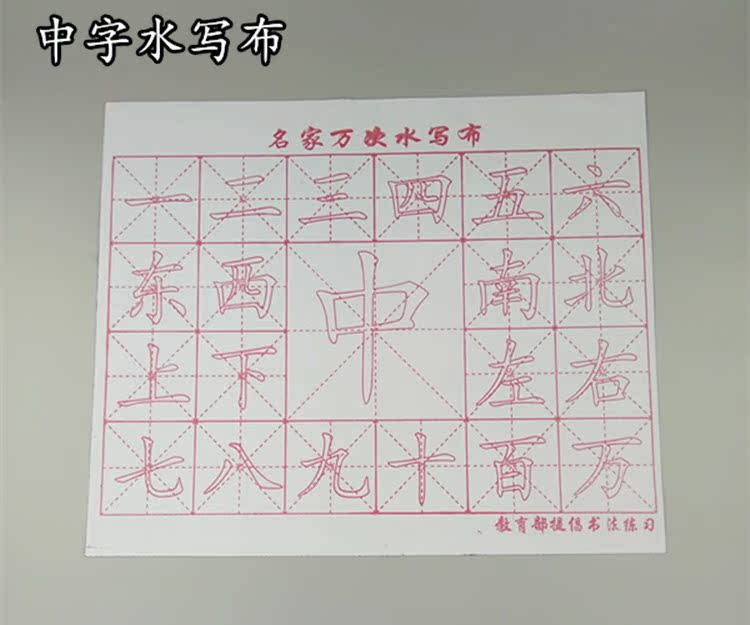 中字水写布
名家万次水写布
一二三四五六
东西中南北
上下左右
七八九十百万
教育部提倡书法练习